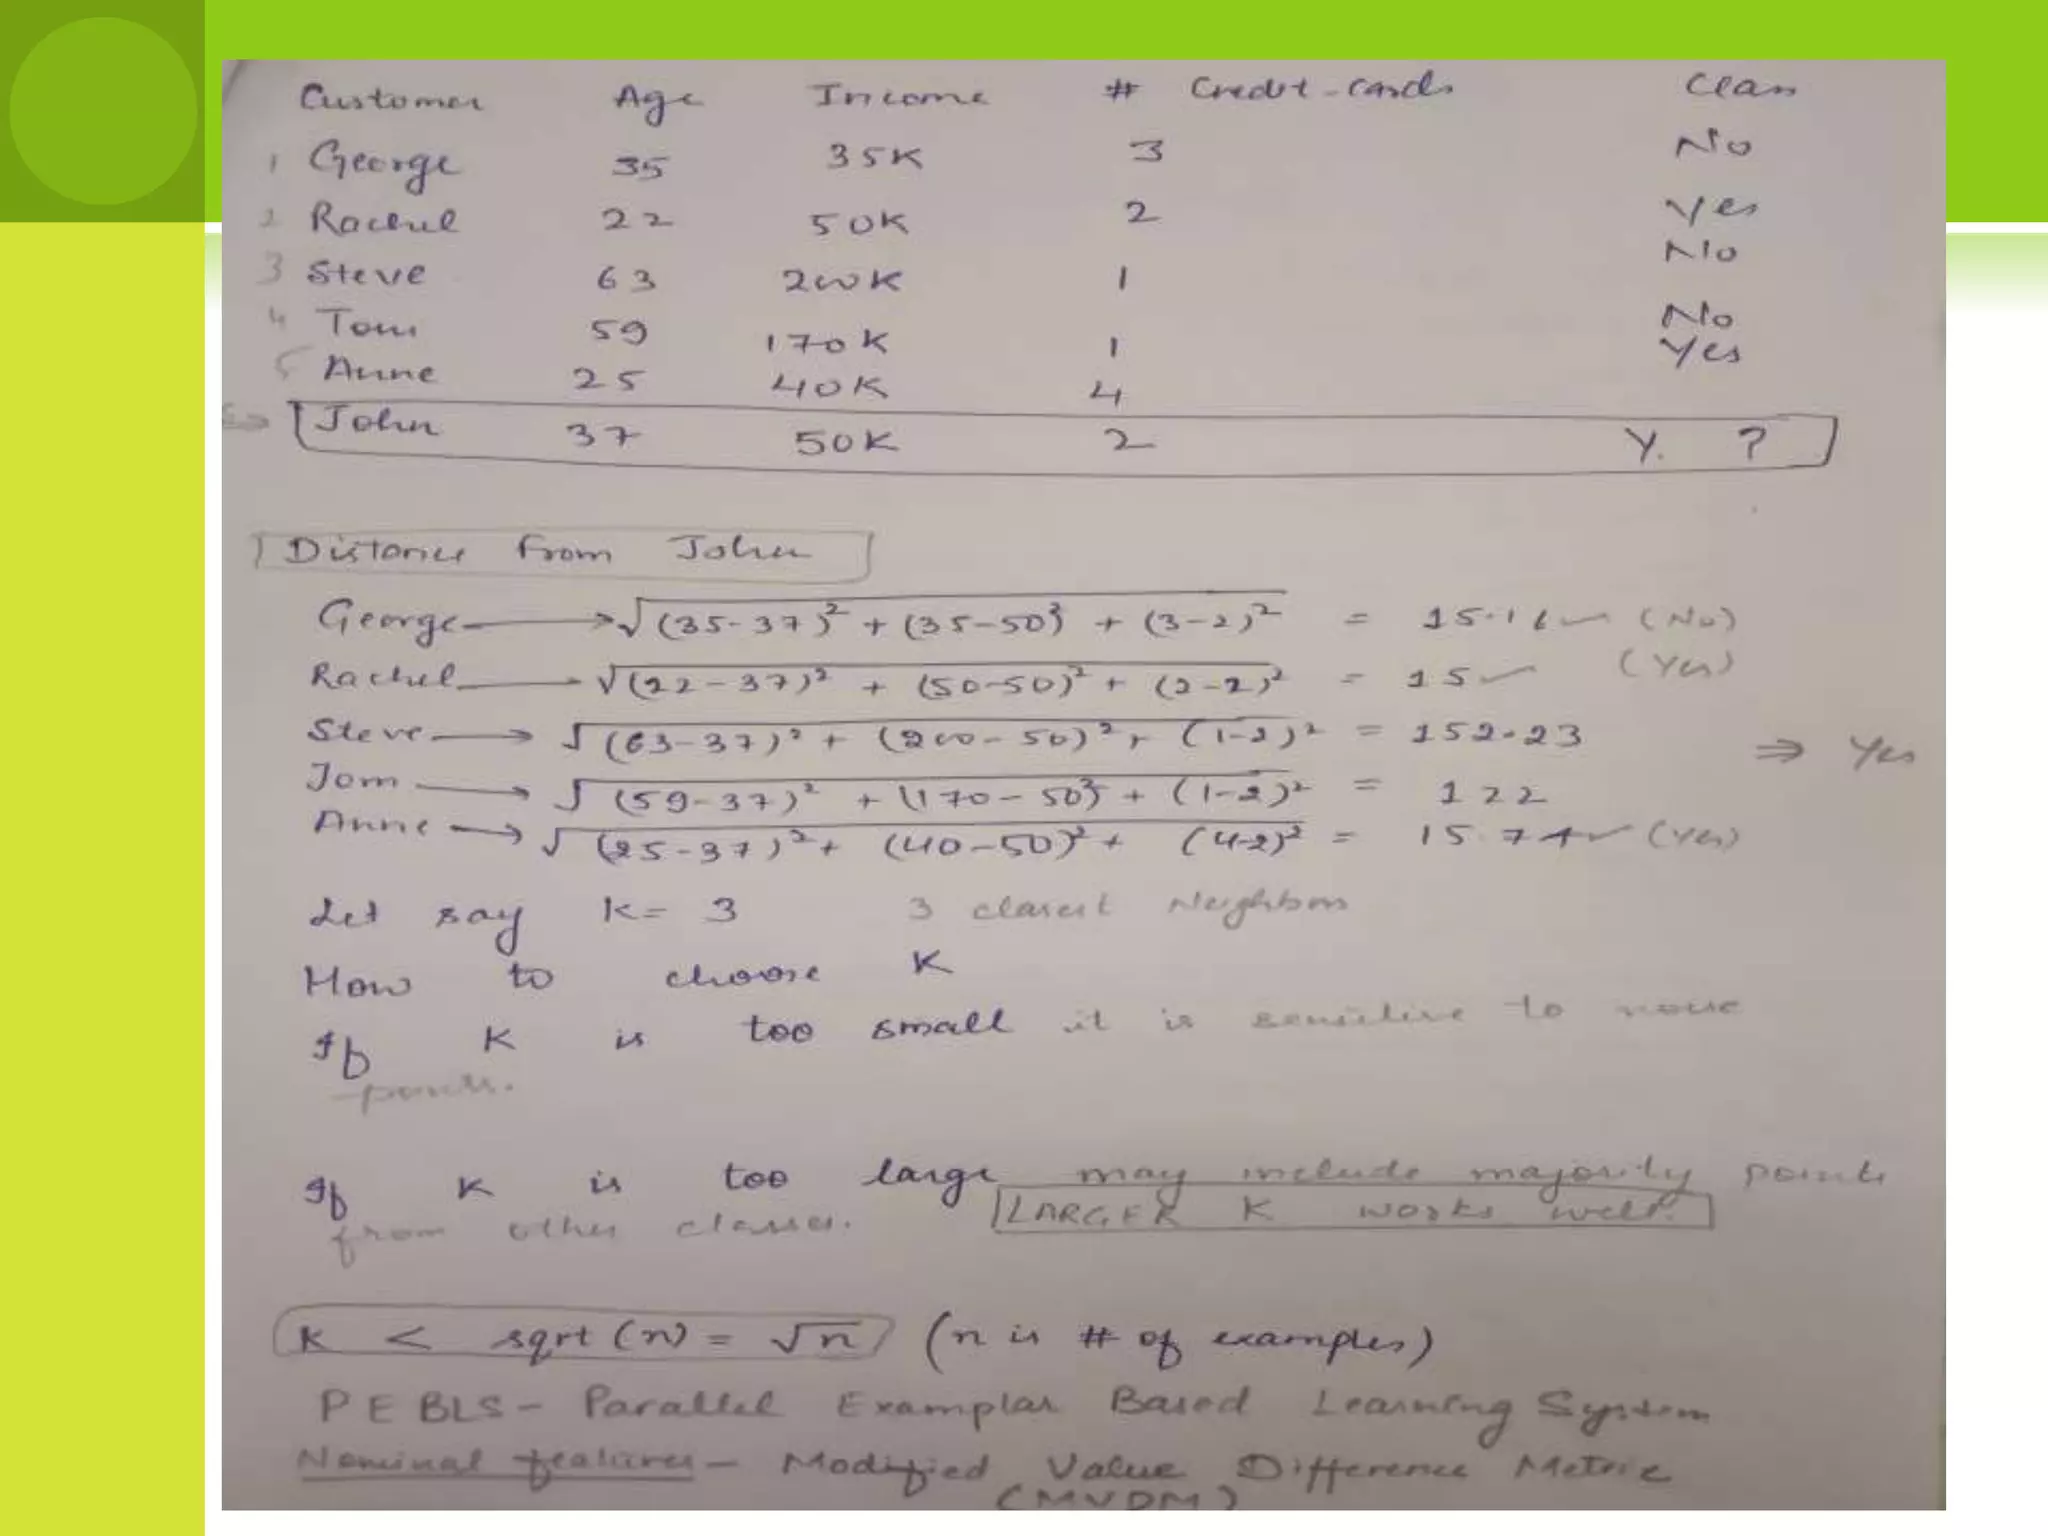 Customer Age Income # Credit-cards Class
1 George 35 35K 3 No
2 Rachel 22 50K 2 Yes
3 Steve 63 200K 1 No
4 Tom 59 170K 1 No
5 Anne 25 40K 4 Yes
John 37 50K 2 Y. ?
Distance from John
George → √(35-37)² + (35-50)² + (3-2)² = 15.16 ✓ (No)
Rachel — √(22-37)² + (50-50)² + (2-2)² = 15 ✓ (Yes)
Steve → √(63-37)² + (200-50)² + (1-2)² = 152.23 ⇒ Yes
Tom → √(59-37)² + (170-50)² + (1-2)² = 122
Anne → √(25-37)² + (40-50)² + (4-2)² = 15.74 ✓ (Yes)
Let say K = 3 3 closest Neighbors
How to choose K
If K is too small it is sensitive to noise
points.
If K is too large may include majority points
from other classes. LARGER K works well.
K < sqrt(n) = √n (n is # of examples)
PEBLS - Parallel Examplar Based Learning System
Nominal features - Modified Value Difference Metric
(MVDM)